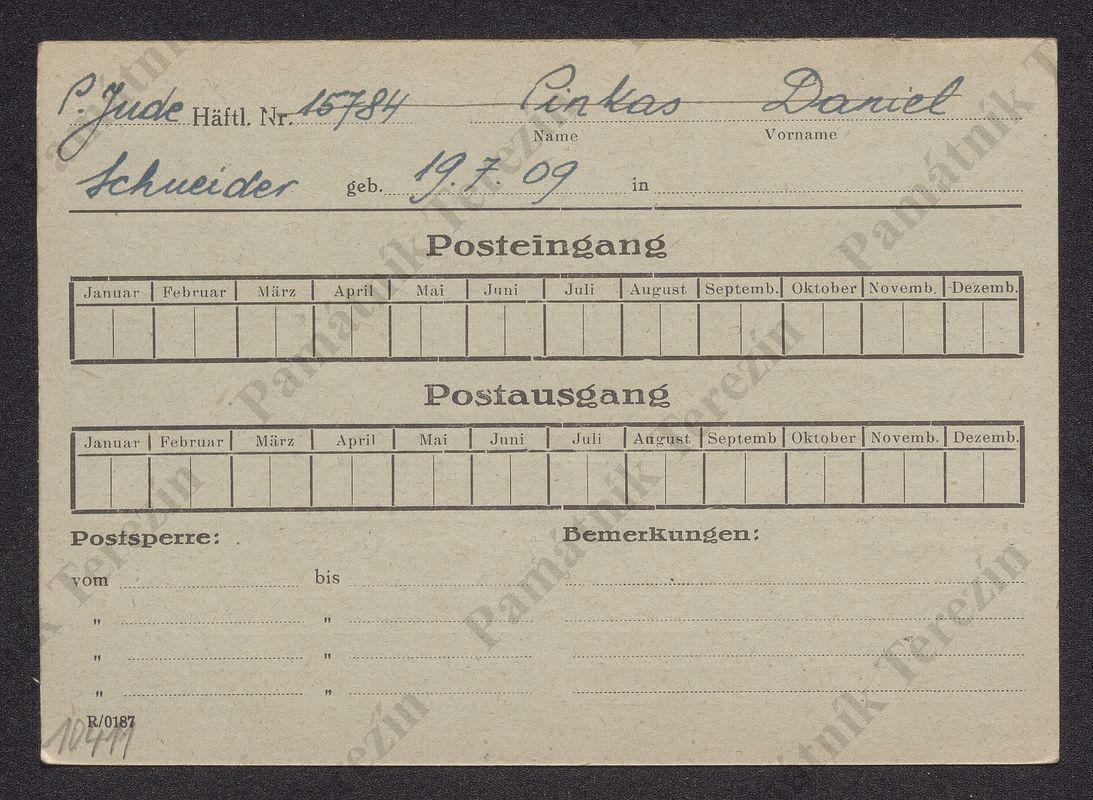 P. Jude Häftl. Nr. 15784 Pinkas Daniel
Name Vorname
Schneider geb. 19.7.09 in
Posteingang
Januar Februar März April Mai Juni Juli August Septemb. Oktober Novemb. Dezemb.
Postausgang
Januar Februar März April Mai Juni Juli August Septemb Oktober Novemb. Dezemb.
Postsperre: Bemerkungen:
vom bis
" "
" "
" "
R/0187
10411
Památník Terezín
Památník Terezín
Památník Terezín
Památník Terezín